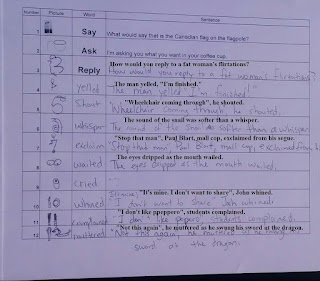 Number Picture Word Sentence
1 Say What would say that is the Canadian flag on the flagpole?
2 Ask I'm asking you what you want in your coffee cup.
How would you reply to a fat woman's flirtations?
3 Reply How would you reply to a fat woman's flirtations?
The man yelled, "I'm finished."
4 yelled The man yelled I'm finished!
"Wheelchair coming through", he shouted.
5 Shout "Wheelchair coming through, he shouted.
The sound of the snail was softer than a whisper.
6 whisper The sound of the snail was softer than a whisper.
"Stop that man", Paul Blart, mall cop, exclaimed from his segue.
7 exclaim "Stop that man, Paul Blart, mall cop, exclaimed from his
The eyes dripped as the mouth wailed.
8 wailed The eyes dripped as the mouth wailed.
9 cried
"It's mine. I don't want to share", John whined.
10 whined It's mine, I don't want to share John whined.
"I don't like ppeppers", students complained.
11 complained I don't like peppers, students complained.
"Not this again", he muttered as he swung his sword at the dragon.
12 muttered "Not this again, he muttered as he swung his
sword at the dragon.